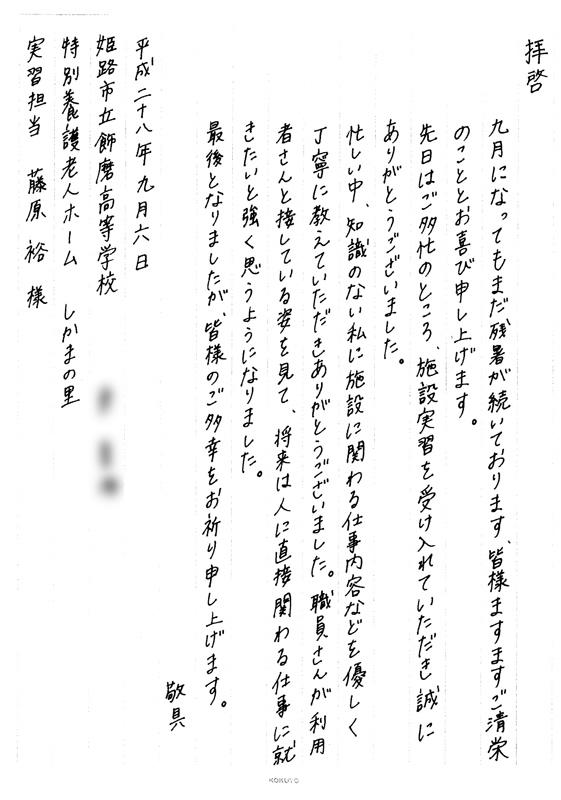 拝啓
九月になってもまだ残暑が続いております、皆様ますますご清栄
のこととお喜び申し上げます。
先日はご多忙のところ、施設実習を受け入れていただき誠に
ありがとうございました。
忙しい中、知識のない私に施設に関わる仕事内容などを優しく
丁寧に教えていただきありがとうございました。職員さんが利用
者さんと接している姿を見て、将来は人に直接関わる仕事に就
きたいと強く思うようになりました。
最後となりましたが、皆様のご多幸をお祈り申し上げます。
敬具
平成二十八年九月六日
姫路市立飾磨高等学校
特別養護老人ホーム しかまの里
実習担当 藤原裕様
KOKUYO